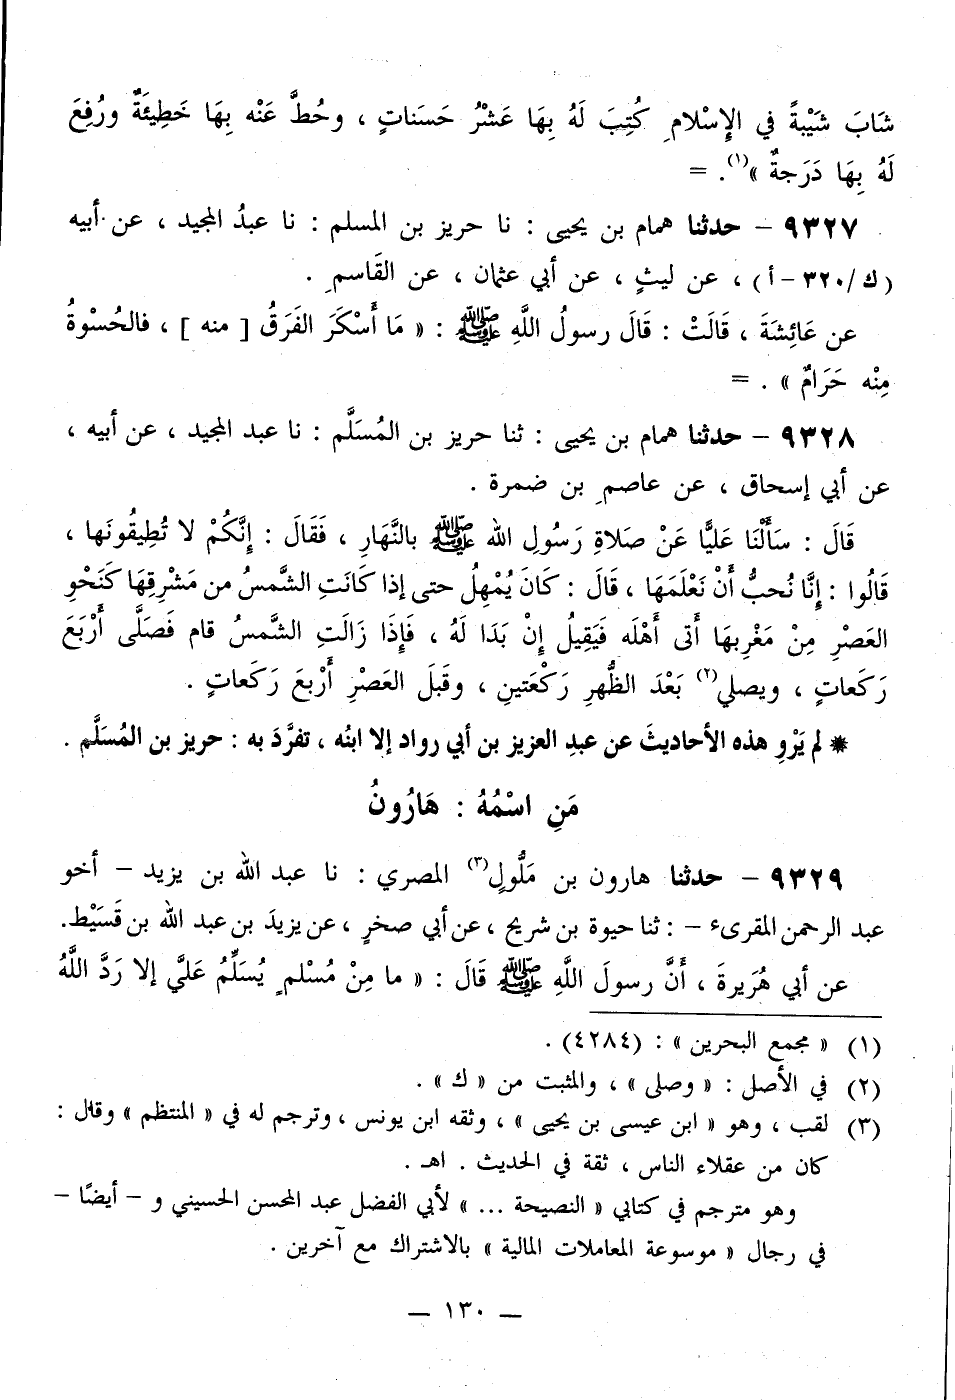 شَابَ شَيْبةً في الإسْلامِ كُتِبَ لَهُ بِهَا عَشْرُ حَسَناتٍ ، وحُطَّ عَنْه بِهَا خَطِيئَةٌ ورُفِعَ
لَهُ بِهَا دَرَجةٌ »(١). =
٩٣٢٧ – حدثنا همام بن يحيى : نا حريز بن المسلم : نا عبدُ المجيد ، عن أبيه
(ك/٣٢٠-أ) ، عن ليثٍ ، عن أبي عثمان ، عن القَاسمِ .
عن عَائِشَةَ ، قَالَتْ : قَالَ رسولُ اللَّهِ ﷺ : « مَا أَسْكَرَ الفَرَقُ [ منه ] ، فالحُسْوةُ
مِنْه حَرَامٌ » . =
٩٣٢٨ – حدثنا همام بن يحيى : ثنا حريز بن المُسَلَّم : نا عبد المجيد ، عن أبيه ،
عن أبي إسحاق ، عن عاصمِ بن ضمرة .
قَالَ : سَأَلْنَا عَليًّا عَنْ صَلاةِ رَسُولِ الله ﷺ بالنَّهَارِ ، فَقَالَ : إِنَّكُمْ لا تُطِيقُونَها ،
قَالُوا : إِنَّا نُحبُّ أَنْ نَعْلَمَهَا ، قَالَ : كَانَ يُمْهِلُ حتى إذا كَانَتِ الشَّمسُ من مَشْرِقِهَا كَنَحْوِ
العَصْرِ مِنْ مَغْرِبهَا أتى أَهْلَه فَيَقِيلُ إِنْ بَدَا لَهُ ، فَإِذَا زَالَتِ الشَّمسُ قام فَصَلَّى أَرْبَعَ
رَكَعاتٍ ، ويصلي(٢) بَعْدَ الظُّهرِ رَكْعَتينِ ، وقَبلَ العَصْرِ أَرْبعَ رَكَعاتٍ .
* لم يَرْوِ هذه الأحاديثَ عن عبدِ العزيز بن أبي رواد إلا ابنُه ، تفرَّدَ به : حريز بن المُسَلَّم .
مَنِ اسْمُهُ : هَارُونُ
٩٣٢٩ – حدثنا هارون بن مَلُّولٍ(٣) المصري : نا عبد الله بن يزيد – أخو
عبد الرحمن المقرىء – : ثنا حيوة بن شريح ، عن أبي صخرٍ ، عن يزيدَ بن عبد الله بن قَسَيْط.
عن أبي هُرَيرةَ ، أَنَّ رسولَ اللَّهِ ﷺ قَالَ : « ما مِنْ مُسْلمٍ يُسَلِّمُ عَليَّ إلا رَدَّ اللَّهُ
(١) « مجمع البحرين » : (٤٢٨٤) .
(٢) في الأصل : « وصلى » ، والمثبت من « ك » .
(٣) لقب ، وهو « ابن عيسى بن يحيى » ، وثقه ابن يونس ، وترجم له في « المنتظم » وقال :
كان من عقلاء الناس ، ثقة في الحديث . اهـ .
وهو مترجم في كتابي « النصيحة ... » لأبي الفضل عبد المحسن الحسيني و – أيضًا –
في رجال « موسوعة المعاملات المالية » بالاشتراك مع آخرين .
– ١٣٠ –